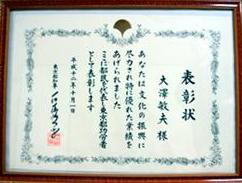 表彰状
大澤敏夫 様
あなたは文化の振興に
尽力され特に優れた業績を
あげられました
ここに都民を代表し東京都功労者
として表彰します
平成十二年十月一日
東京都知事